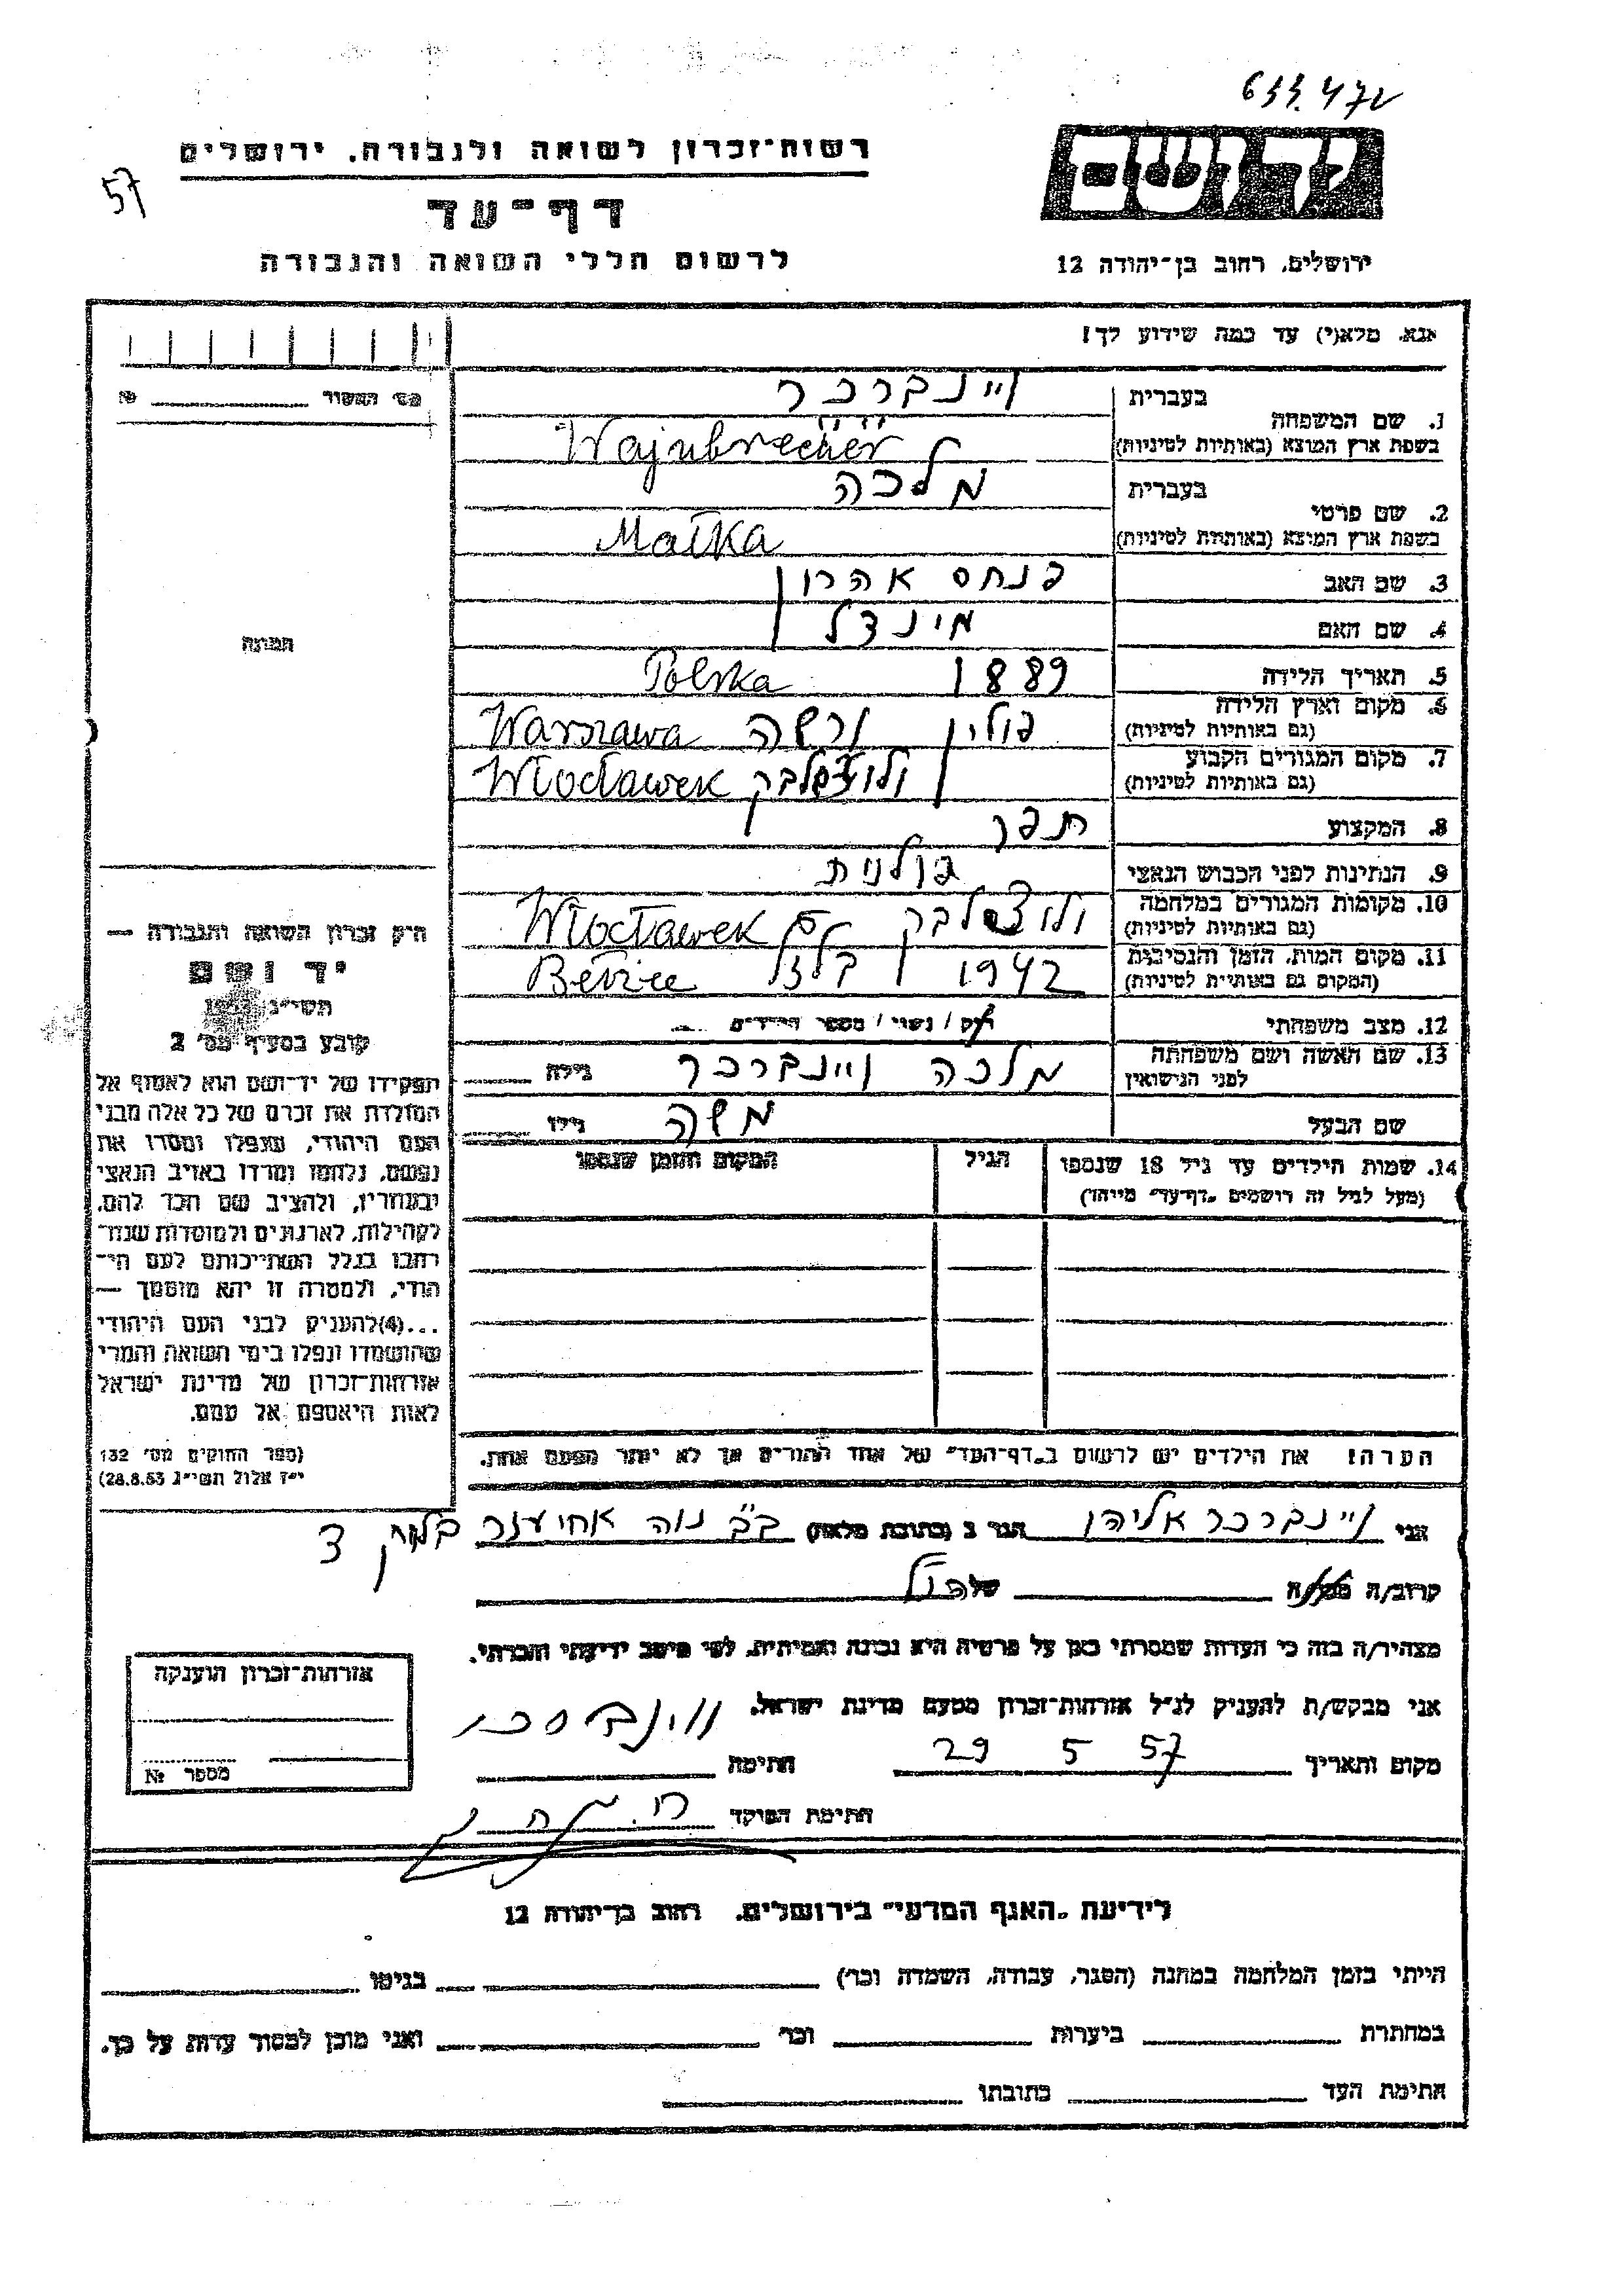 633.472
רשות־זכרון לשואה ולגבורה. ירושלים
57
דף־עד
לרשום חללי השואה והגבורה
יד ושם
ירושלים, רחוב בן־יהודה 12
אנא, מלא(י) עד כמה שידוע לך!
מס׳ האשור №
1. שם המשפחה
בעברית ויינברכר
בשפת ארץ המוצא (באותיות לטיניות) Wajnbrecher
2. שם פרטי
בעברית מלכה
בשפת ארץ המוצא (באותיות לטיניות) Małka
3. שם האב פנחס אהרון
4. שם האם מינדל
תמונה
5. תאריך הלידה 1889 Polska
6. מקום וארץ הלידה (גם באותיות לטיניות) פולין ורשה Warszawa
7. מקום המגורים הקבוע (גם באותיות לטיניות) ולוצלבק Włocławek
8. המקצוע תפר
9. הנתינות לפני הכבוש הנאצי פולנית
10. מקומות המגורים במלחמה (גם באותיות לטיניות) ולוצלבק Włocławek
11. מקום המות, הזמן והנסיבות (המקום גם באותיות לטיניות) 1942 בלזץ Bełżec
12. מצב משפחתי רוק / נשוי / מספר הילדים
13. שם האשה ושם משפחתה לפני הנישואין מלכה ויינברכר גילה
שם הבעל משה גילו
14. שמות הילדים עד גיל 18 שנספו הגיל המקום והזמן שנספו
(מעל לגיל זה רושמים "דף־עד" מיוחד)
חוק זכרון השואה והגבורה —
יד ושם
תשי״ג
קובע בסעיף מס׳ 2
תפקידו של יד־ושם הוא לאסוף אל
המולדת את זכרם של כל אלה מבני
העם היהודי, שנפלו ומסרו את
נפשם, נלחמו ומרדו באויב הנאצי
ובעוזריו, ולהציב שם וזכר להם,
לקהילות, לארגונים ולמוסדות שנח־
רבו בגלל השתייכותם לעם הי־
הודי, ולמטרה זו יהא מוסמך —
...(4) להעניק לבני העם היהודי
שהושמדו ונפלו בימי השואה והמרי
אזרחות־זכרון של מדינת ישראל
לאות היאספם אל עמם.
(ספר החוקים מס׳ 132
י״ז אלול תשי״ג 28.8.53)
הערה! את הילדים יש לרשום ב"דף־העד" של אחד ההורים אך לא יותר מפעם אחת.
אני ויינברכר אליהו הגר ב (כתובת מלאה) ב״ב נוה אחיעזר בלוק 3
קרוב/ה מכר/ה של הנ״ל
מצהיר/ה בזה כי העדות שמסרתי כאן על פרטיה היא נכונה ואמיתית, לפי מיטב ידיעתי והכרתי.
אני מבקש/ת להעניק לנ״ל אזרחות־זכרון מטעם מדינת ישראל.
מקום ותאריך 29 5 57 חתימה ויינברכר
חתימת הפוקד
אזרחות־זכרון הוענקה
מספר №
לידיעת "האגף המדעי" בירושלים, רחוב בן־יהודה 12
הייתי בזמן המלחמה במחנה (הסגר, עבודה, השמדה וכו׳) בגיטו
במחתרת ביערות וכו׳ ואני מוכן למסור עדות על כך.
חתימת העד כתובתו